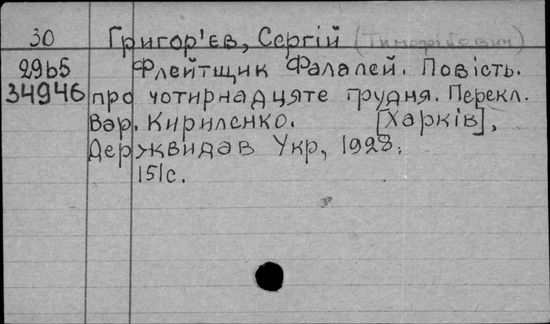 30 Григор'єв, Сергій (Тимофійович)
29b5 Флейтщик Фалалей. Повість.
34946 про чотирнадцяте грудня. Перекл.
Вар. Кириленко. [Харків],
Держвидав Укр, 1928.
151с.